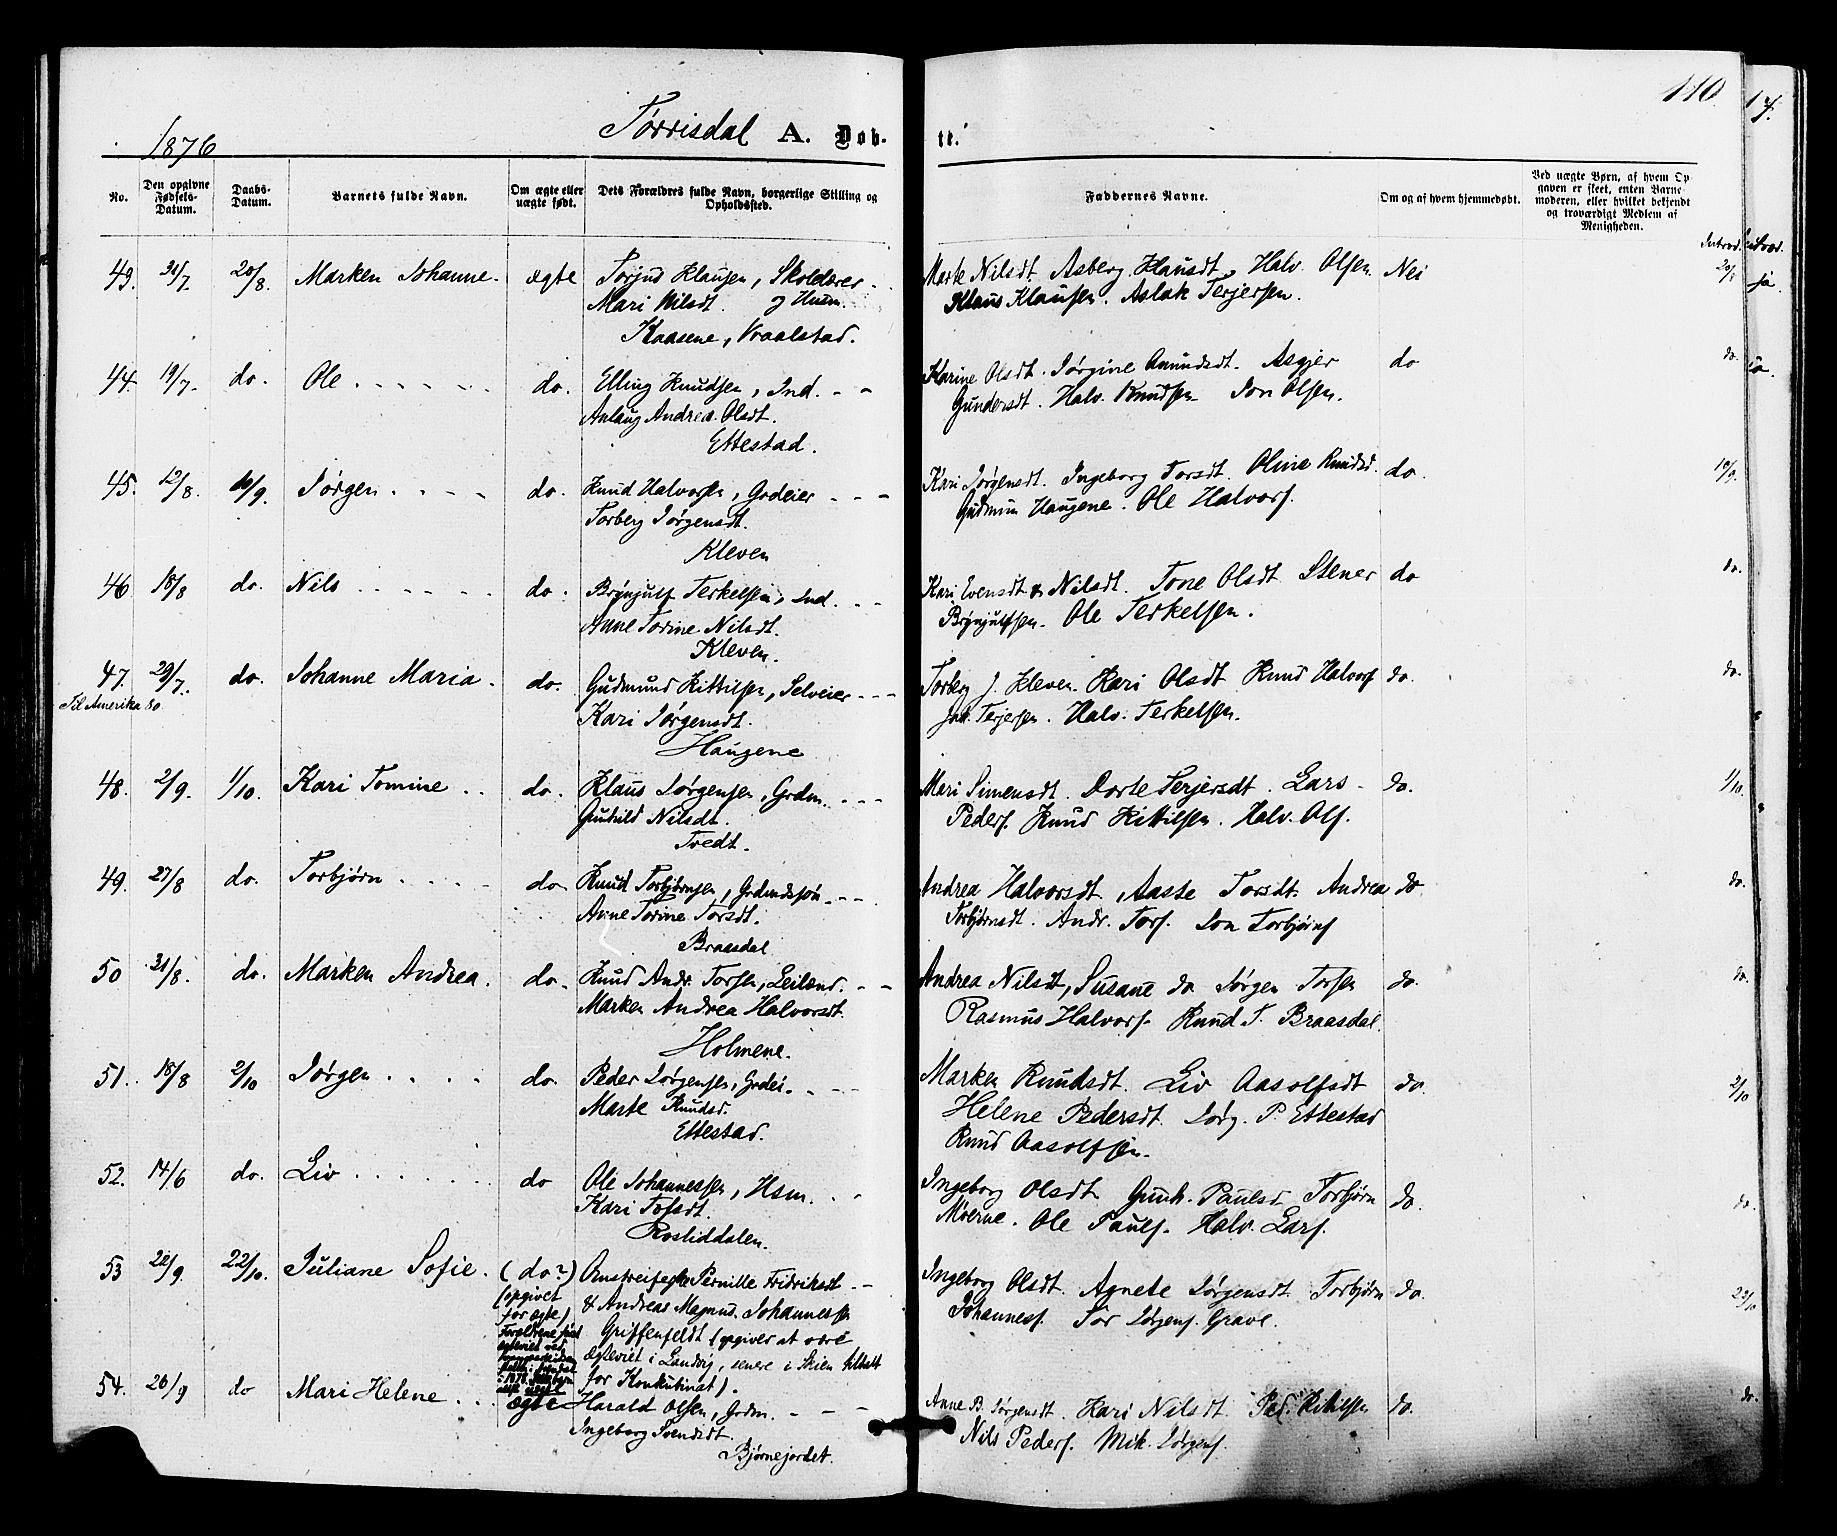 1876
Tørrisdal A. Døb-
te.
110.
17.
No.
Den opgivne Fødsels-Datum.
Daabs-Datum.
Barnets fulde Navn.
Om ægte eller uægte født.
Dets Forældres fulde Navn, borgerlige Stilling og Opholdssted.
Faddernes Navne.
Om og af hvem hjemmedøbt.
Ved uægte Børn, af hvem Op-
gaven er skeet, enten Barne-
moderen, eller hvilket bekjendt
og troværdigt Medlem af
Menigheden.
Introd.
49. 31/7 20/8. Marken Johanne. ægte Torjus Klausen, Skolelærer Marte Nilsdt. Asberg Klausdt. Halv. Olsen Nei 20/8
Mari Nilsdt. og Husm. Klaus Klausen. Aslak Terjersen.
Kaasene, Vraalstad.
44. 19/7. do. Ole . . . . . . do. Elling Knudsen, Ind. - - Karine Olsdt. Jørgine Amundsdt. Asgjer do do.
Anlaug Andrea Olsdt. Gundersdt. Halv. Knudsen Jon Olsen.
Ettestad.
45. 12/8. 10/9. Jørgen . . . . do. Knud Halvorsen, Grdeier - - - Kari Jørgensdt. Ingeborg Torsdt. Oline Knudsd. do 10/9
Torberg Jørgensdt. Gudmun Haugene. Ole Halvors.
Kleven
46 18/8 do. Nils . . . . . . do. Brynjulf Terkelsen, Ind. . - - Kari Evensdt & Nilsdt. Tone Olsdt Stener do do.
Anne Torine Nilsdt. Brynjulfsen. Ole Terkelsen.
Kleven.
47. 29/7. do. Johanne Maria. do. Gudmund Kittilsen, Selveier - - - Torberg J. Kleven. Kari Olsdt Knud Halvors do. do.
Til Amerika 80. Kari Jørgensdt. Joh. Terjersen. Halv. Terkelsen.
Haugene
48. 2/9. 1/10. Kari Tomine . . do. Klaus Jørgensen, Grdm. . - - Mari Simensdt. Dorte Terjersdt. Lars - do. 1/10.
Gunhild Nilsdt. Peders. Knud Kittilsen. Halv. Ols.
Tvedt.
49. 27/8 do. Torbjørn . . . . . do. Knud Torbjørnsen, Grdmdssøn. - - . Andrea Halvorsdt, Aaste Torsdt. Andrea do do.
Anne Torine Torsdt. Torbjørnsdt. Andr. Tors. Jon Torbjørns
Braasdal
50 31/8. do. Marken Andrea. do. Knud Andr. Torsen, Leilænd. - - Andrea Nilsdt, Susane do Jørgen Torsen do. do.
Marken Andrea Halvorsdt. Rasmus Halvors. Knud T. Braasdal.
Holmene.
51. 18/8 2/10 Jørgen . . . . do. Peder Jørgensen, Grdei. - - - Marken Knudsdt. Liv Aasolfsdt do. 2/10
Marte Knudsd. Helene Pedersdt. Jørg. P. Ettestad
Ettestad. Knud Aasolfsen.
52. 14/6 do. Liv . . . . . . . do Ole Johannessen, Hsm. . . Ingeborg Olsdt. Gunh. Paulsd. Torbjørn do. do.
Kari Tofsdt. Moerne. Ole Pauls. Halv. Lars.
Rosliddalen.
53 22/9. 22/10. Juliane Sofie. (do?) Omstreiferske Pernille Fridriksdt - - Ingeborg Olsdt. Agnete Jørgensdt Torbjørn do. 22/10
(opgivet for ægte) & Andreas Magnus Johannessen Johanness. Tor Jørgens. Grave.
Forældrene
Griffenfeldt (opgiver at være
ægteviet i Landvig, senere i Skien tiltalt
for Konkubinat).
54. 26/9 do Mari Helene . . . ægte Harald Olsen, Grdm. - - - Anne B. Jørgensdt. Kari Nilsdt. Ped. Kittilsen do. do.
Ingeborg Svendsdt. Nils Peders. Mik. Jørgens.
Bjørnejordet.